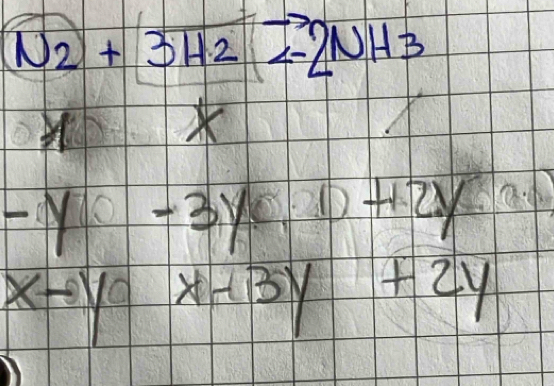 N2 + 3H2 ⇄ 2NH3
x x /
-y -3y +2y
x-y x-3y +2y